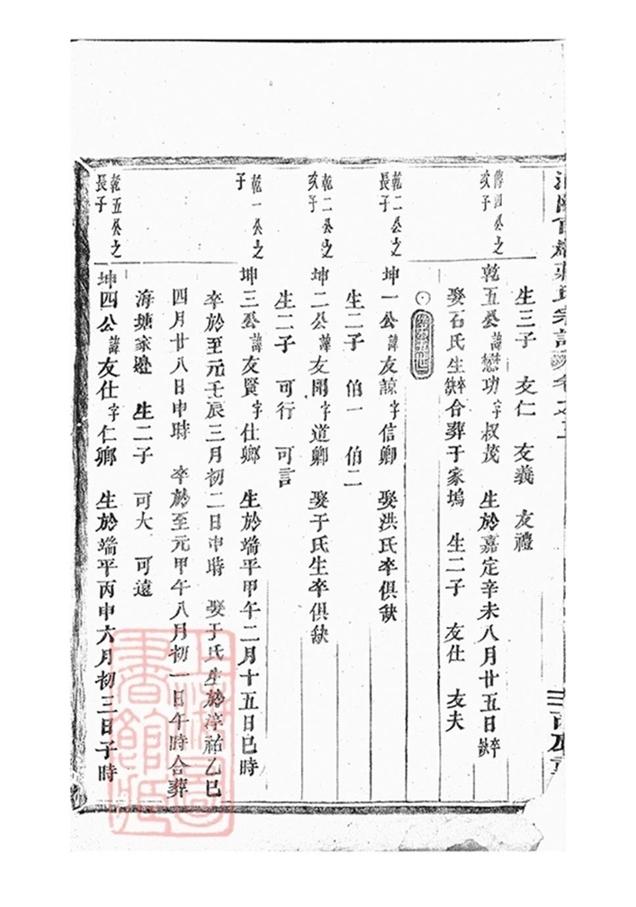 生三子 友仁 友義 友禮
傳四公之次子
乾五公諱懋功字叔茂 生於嘉定辛未八月廿五日卒缺
娶石氏生卒缺合葬于家塢 生二子 友仕 友夫
乾二公之長子
坤一公諱友諒字信卿 娶洪氏卒俱缺
生二子 伯一 伯二
乾二公之次子
坤二公諱友開字道卿 娶于氏生卒俱缺
生二子 可行 可言
乾一公之子
坤三公諱友賢字仕卿 生於端平甲午二月十五日巳時
卒於至元壬辰三月初二日申時 娶于氏生於淳祐乙巳
四月廿八日申時 卒於至元甲午八月初一日午時合葬
海塘家邊 生二子 可大 可遠
乾五公之長子
坤四公諱友仕字仁卿 生於端平丙申六月初三日子時